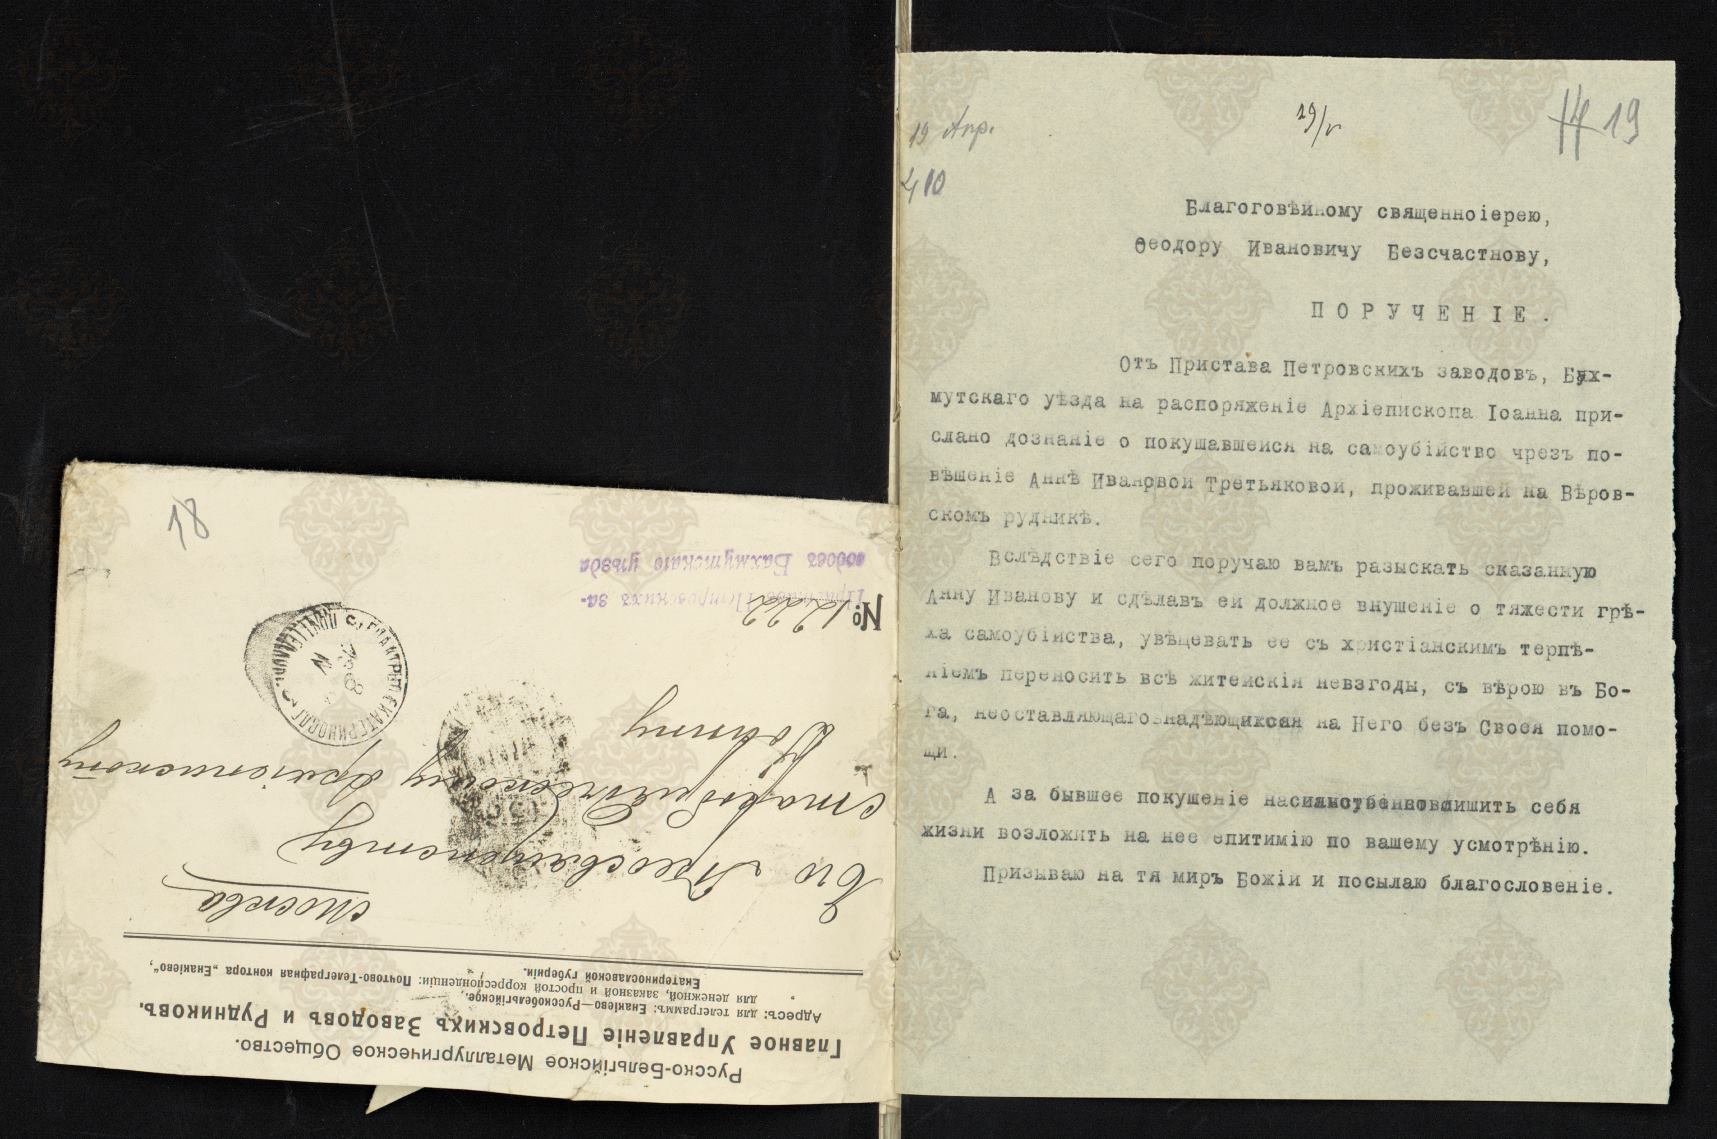 18
Русско-Бельгійское Металлургическое Общество.
Главное Управленіе Петровскихъ Заводовъ и Рудниковъ.
Адресъ: для телеграммъ: Енакіево—Русскобельгійское,
для денежной, заказной и простой корреспонденціи: Почтово-Телеграфная контора „Енакіево“,
Екатеринославской губерніи.
Москва
Его Преосвященству
Старообрядческому Архіепископу
Іоанну
№ 1222
Пристав Петровскихъ за-
водовъ Бахмутскаго уѣзда
19 Апр.
410
19/V
14 19
Благоговѣйному священноіерею,
Ѳеодору Ивановичу Безсчастнову,
ПОРУЧЕНІЕ.
Отъ Пристава Петровскихъ заводовъ, Бах-
мутскаго уѣзда на распоряженіе Архіепископа Іоанна при-
слано дознаніе о покушавшейся на самоубійство чрезъ по-
вѣшеніе Аннѣ Ивановой Третьяковой, проживавшей на Вѣров-
скомъ рудникѣ.
Вслѣдствіе сего поручаю вамъ разыскать сказанную
Анну Иванову и сдѣлавъ ей должное внушеніе о тяжести грѣ-
ха самоубійства, увѣщевать ее съ христіанскимъ терпѣ-
ніемъ переносить всѣ житейскія невзгоды, съ вѣрою въ Бо-
га, неоставляющаго надѣющихся на Него безъ Своея помо-
щи.
А за бывшее покушеніе насильственно лишить себя
жизни возложить на нее епитимію по вашему усмотрѣнію.
Призываю на тя миръ Божій и посылаю благословеніе.